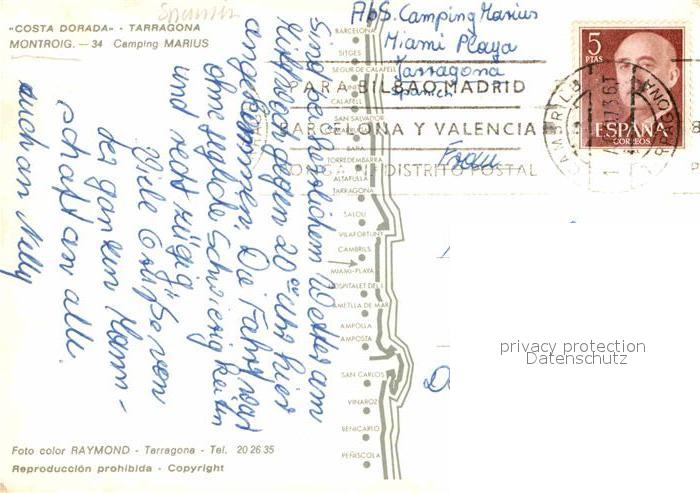 Spanien
"COSTA DORADA" - TARRAGONA
MONTROIG. - 34 Camping MARIUS
Abs. Camping Marius
Miami Playa
Tarragona
Spanien
5
PTAS
ESPAÑA
CORREOS
CAMBRILS
TARRAGONA
PARA BILBAO, MADRID
BARCELONA Y VALENCIA
DISTRITO POSTAL
Frau
Sind bei herrlichem Wetter am
Mittwoch gegen 20 00 Uhr hier
angekommen. Die Fahrt war
ohne jegliche Schwierigkeiten
und recht zügig.
Viele Grüße von
der ganzen Mann-
schaft an alle.
auch an Nelly
BARCELONA
SITGES
SEGUR DE CALAFELL
CALAFELL
SAN SALVADOR
BARA
TORREDEMBARRA
ALTAFULLA
TARRAGONA
SALOU
VILAFORTUNY
CAMBRILS
MIAMI-PLAYA
HOSPITALET DEL I.
AMETLLA DE MAR
AMPOLLA
AMPOSTA
SAN CARLOS
VINAROZ
BENICARLO
PEÑISCOLA
privacy protection
Datenschutz
Foto color RAYMOND - Tarragona - Tel. 20 26 35
Reproducción prohibida - Copyright